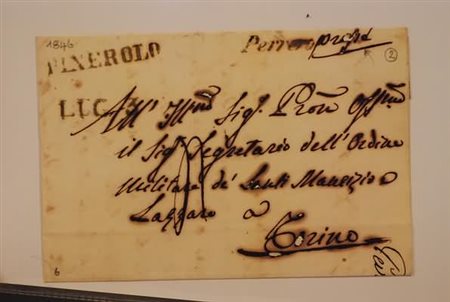 1846
PINEROLO
Perrero
2
LUG
All' Ill.mo Sig. Pron
il Sig. Segretario dell'Ordine
Militare de' Santi Maurizio e
Lazzaro a
Torino
6